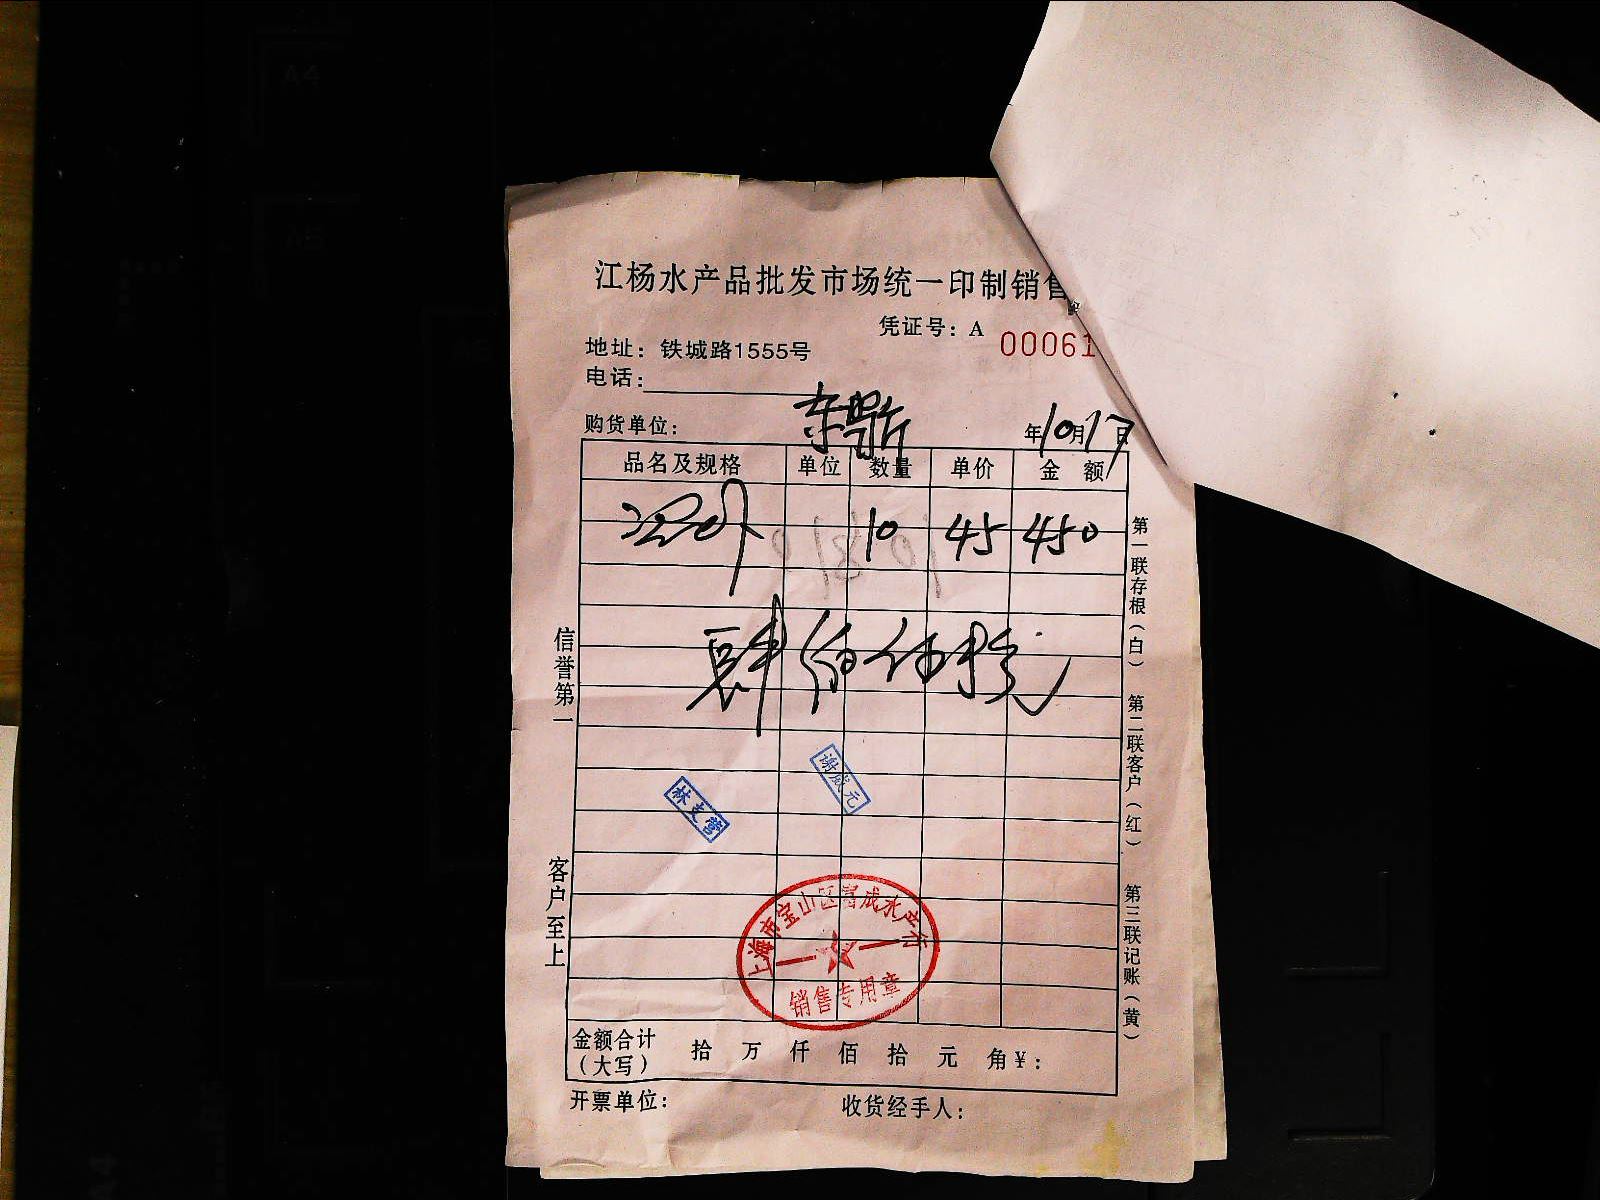 江杨水产品批发市场统一印制销售
凭证号：A 00061
地址：铁城路1555号
电话：
购货单位：
年10月17日
品名及规格 单位 数量 单价 金 额
10 45 450
肆佰伍拾元
信誉第一
客户至上
第一联存根（白）
第二联客户（红）
第三联记账（黄）
谢成元
林支营
上海市宝山区 成水产行
销售专用章
金额合计
（大写）
拾 万 仟 佰 拾 元 角￥：
开票单位： 收货经手人：
A4
A5